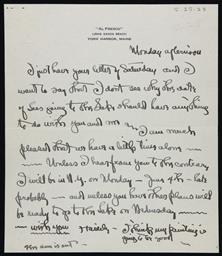 5-25-25
"AL FRESCO"
LONG SANDS BEACH
YORK HARBOR, MAINE
Monday afternoon
I just have your letter of Saturday and I
want to say that I don't see why the date
of Lees going to the Lake should have anything
to do with you and me — I am much
pleased that we have a little time alone —
Unless I hear from you to the contrary
I will be in N.Y. on Monday — June 4th - late
probably — and unless you have other plans will
be ready to go to the Lake on Wednesday —
with you
I think my painting is
going to be good